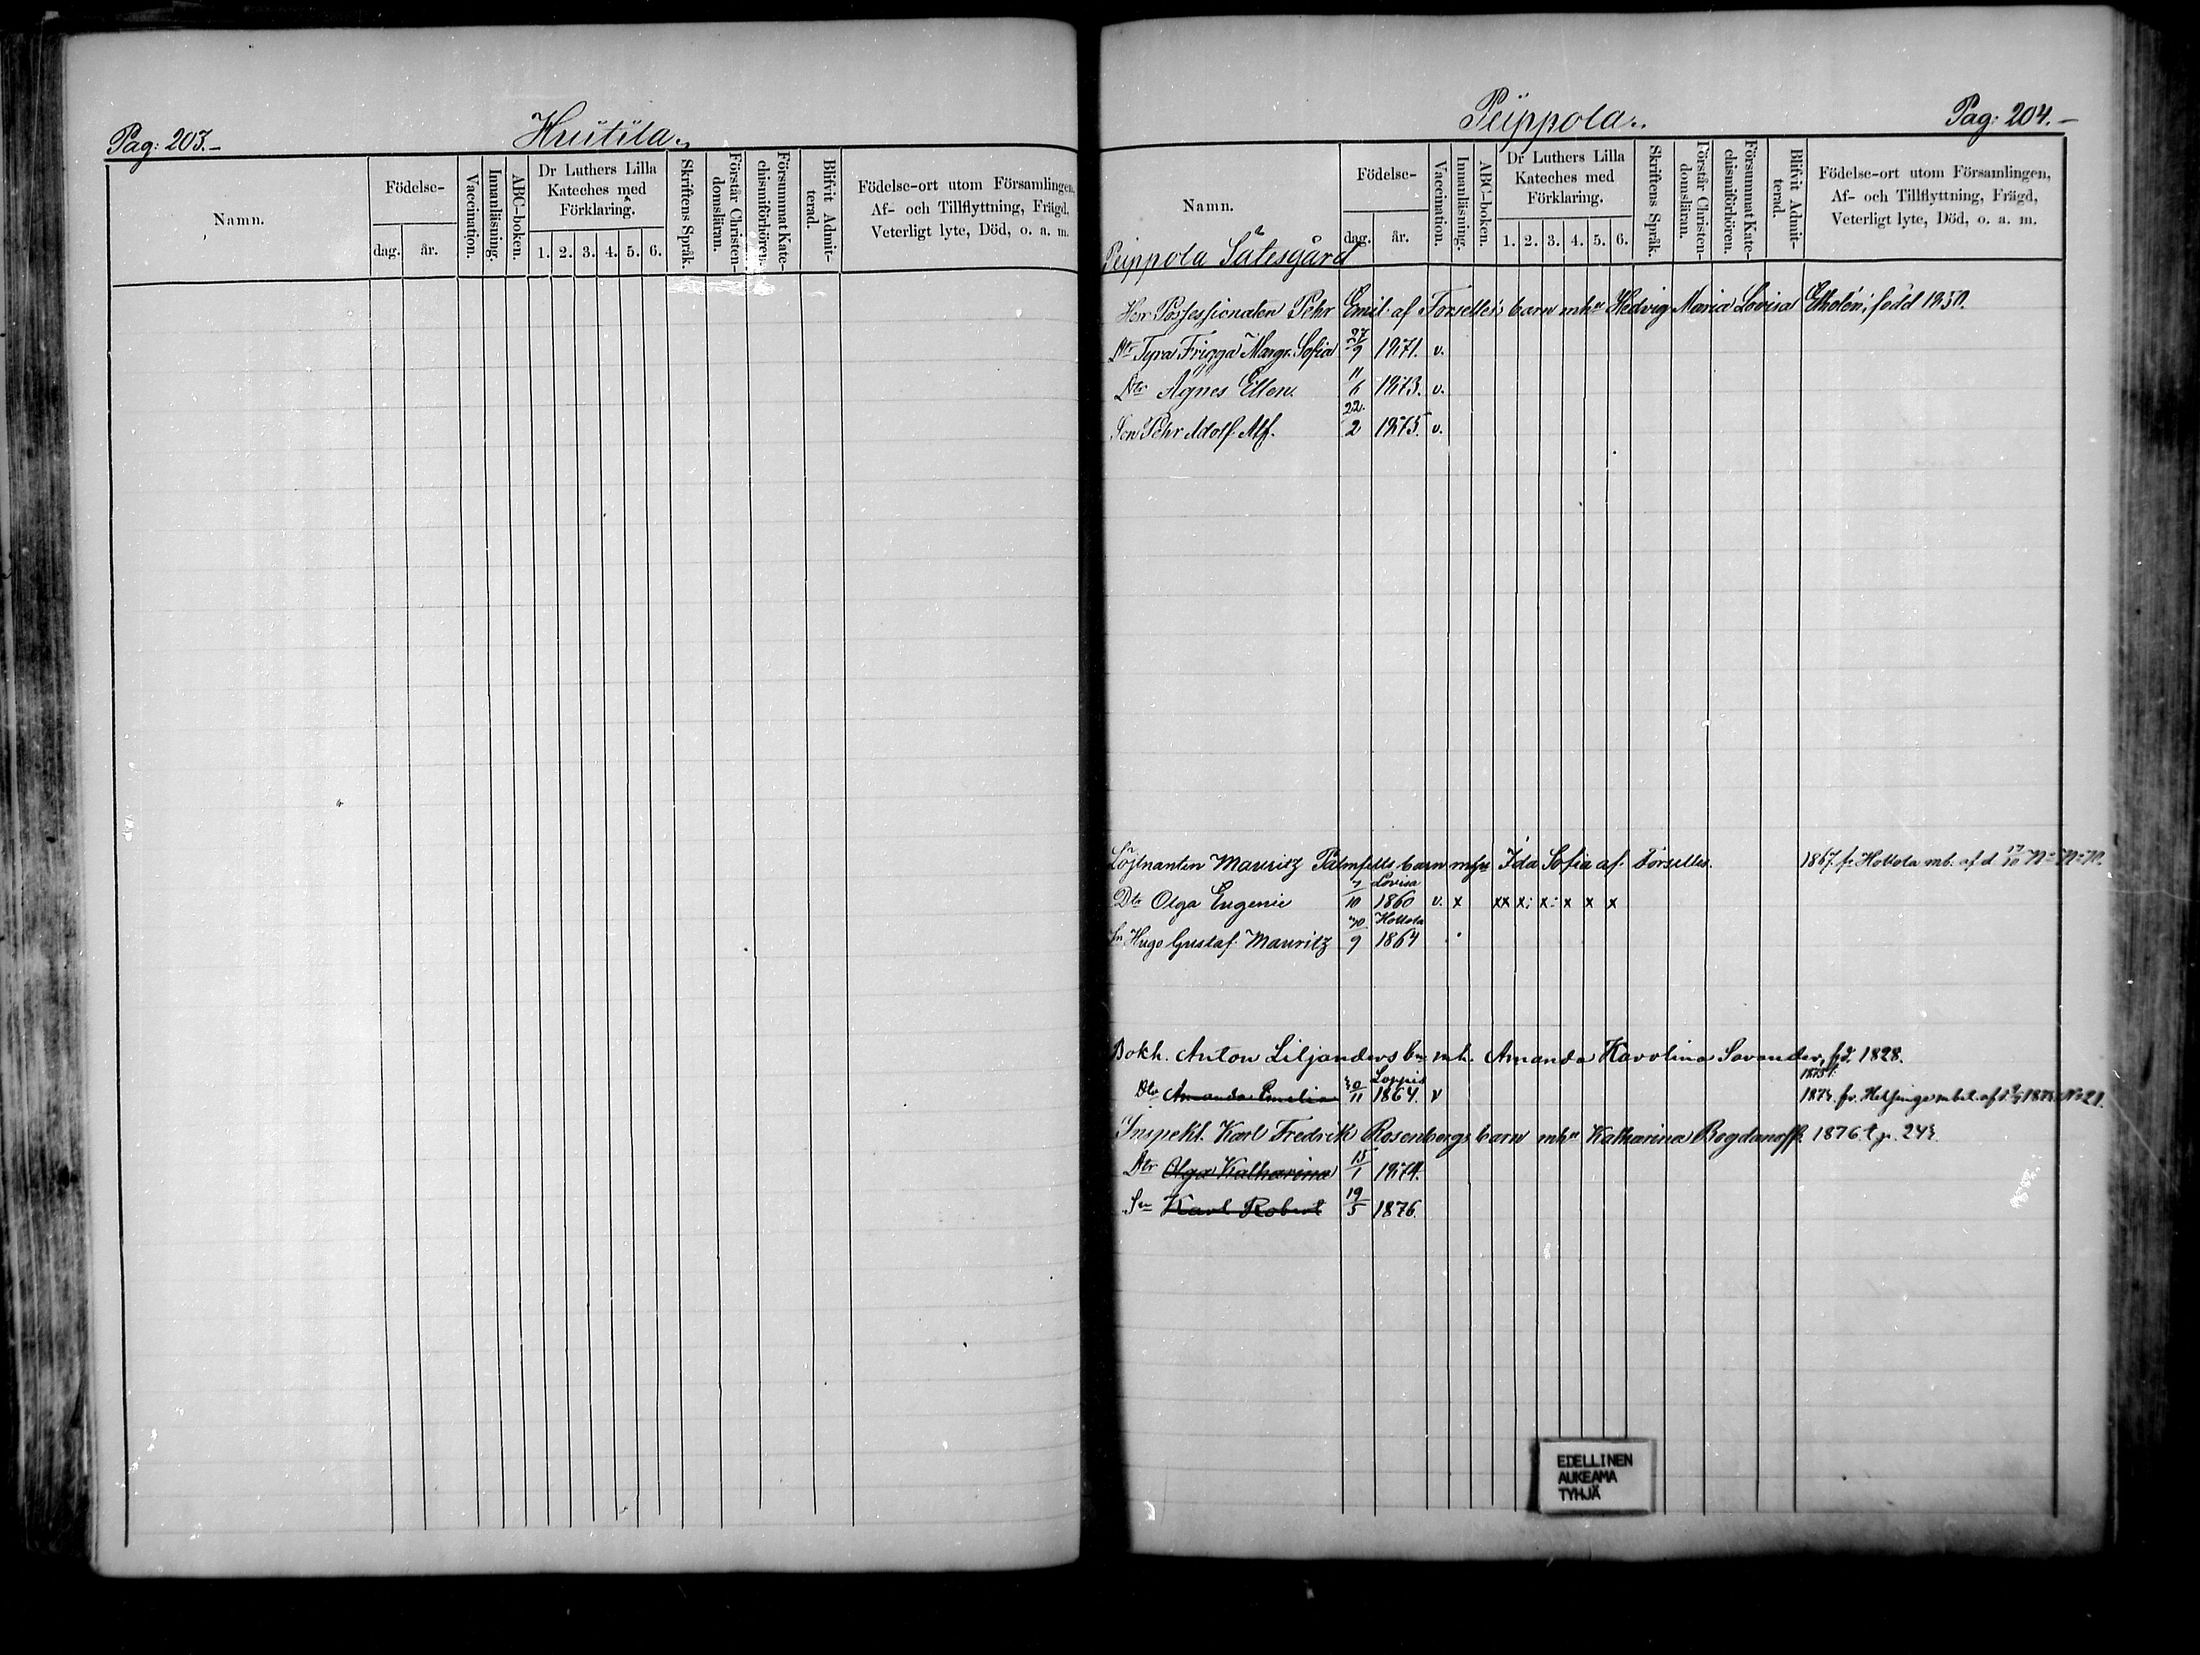 Pag: 203.
Huitila.
Namn.
Födelse-
dag.
år.
Vaccination.
Innanläsning.
ABC-boken.
Dr Luthers Lilla
Kateches med
Förklaring.
1. 2. 3. 4. 5. 6.
Skriftens Språk.
Förstår Christen-
domsläran.
Försummat Kate-
chismiförhören.
Blifvit Admit-
terad.
Födelse-ort utom Församlingen,
Af- och Tillflyttning, Frägd,
Veterligt lyte, Död, o. a. m.
Peippola.
Pag: 204.
Namn.
Födelse-
dag.
år.
Vaccination.
Innanläsning.
ABC-boken.
Dr Luthers Lilla
Kateches med
Förklaring.
1. 2. 3. 4. 5. 6.
Skriftens Språk.
Förstår Christen-
domsläran.
Försummat Kate-
chismiförhören.
Blifvit Admit-
terad.
Födelse-ort utom Församlingen,
Af- och Tillflyttning, Frägd,
Veterligt lyte, Död, o. a. m.
Peippola Sätesgård
Herr Possessionaten Pehr Emil af Forselles barn mhu Hedvig Maria Lovisa Etholén, född 1850.
Dtr Tyra Frigga Margr. Sofia 27/9 1871. v.
Dtr Agnes Ellen. 11/6 1873. v.
Son Pehr Adolf Alf. 22/2 1875. v.
Löjtnanten Mauritz Palmfelts barn mhu Ida Sofia af Forselles. 1867 fr. Hollola mb. af d
Lovisa
Dtr Olga Eugenie 7/10 1860 v. x xx x: x: x x x
Hollola
Sn Hugo Gustaf Mauritz 30/9 1864
Bokh. Anton Liljanders bn mh. Amanda Karolina Savander, fd. 1828.
Loppis
1875 t.
Dtr Amanda Emilia 30/11 1864. v 1874. fr. Helsinge mbet. af d. No 21.
Inspekt. Karl Fredrik Rosenbergs barn mhu Katharina Bogdanoff. 1876 t. p. 243.
Dtr Olga Katharina 15/1 1874.
Sn Karl Robert 19/5 1876.
EDELLINEN
AUKEAMA
TYHJÄ